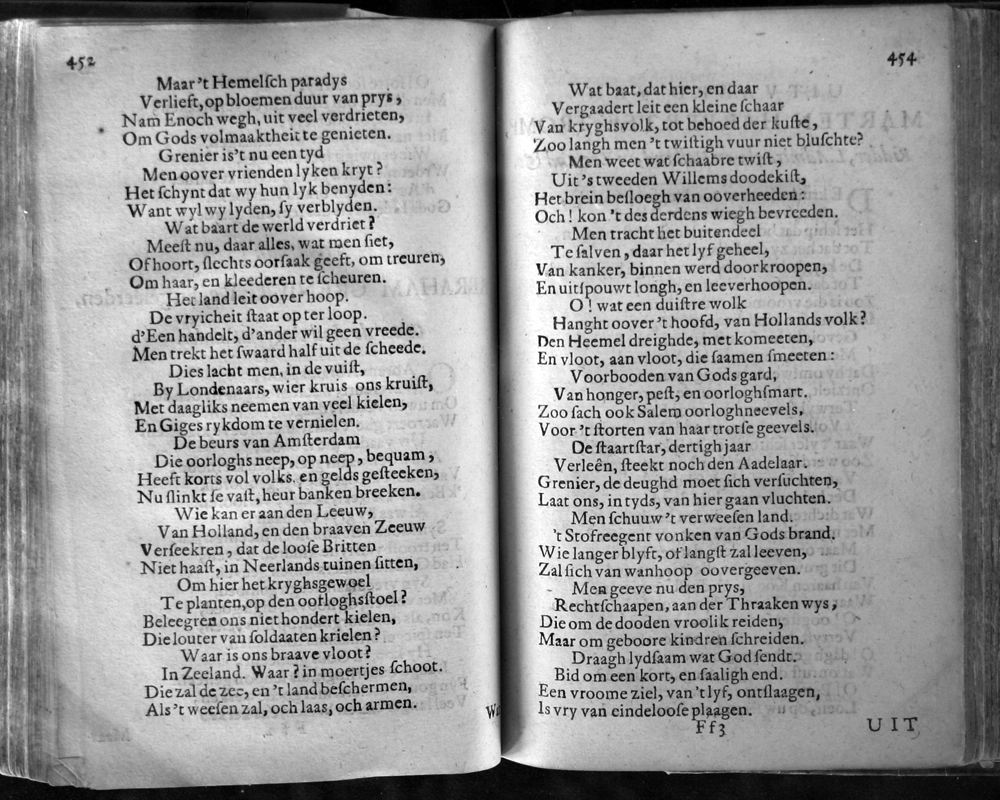 452
Maar 't Hemelſch paradys
Verlieft, op bloemen duur van prys,
Nam Enoch wegh, uit veel verdrieten,
Om Gods volmaaktheit te genieten.
Grenier is't nu een tyd
Men oover vrienden lyken kryt?
Het ſchynt dat wy hun lyk benyden:
Want wyl wy lyden, ſy verblyden.
Wat baart de werld verdriet?
Meeſt nu, daar alles, wat men ſiet,
Of hoort, ſlechts oorſaak geeft, om treuren,
Om haar, en kleederen te ſcheuren.
Het land leit oover hoop.
De vryicheit ſtaat op ter loop.
d'Een handelt, d'ander wil geen vreede.
Men trekt het ſwaard half uit de ſcheede.
Dies lacht men, in de vuiſt,
By Londenaars, wier kruis ons kruiſt,
Met daagliks neemen van veel kielen,
En Giges rykdom te vernielen.
De beurs van Amſterdam
Die oorloghs neep, op neep, bequam,
Heeft korts vol volks, en gelds geſteeken,
Nu ſlinkt ſe vaſt, heur banken breeken.
Wie kan er aan den Leeuw,
Van Holland, en den braaven Zeeuw
Verſeekren, dat de looſe Britten
Niet haaſt, in Neerlands tuinen ſitten,
Om hier het kryghsgewoel
Te planten, op den oorloghsſtoel?
Beleegren ons niet hondert kielen,
Die louter van ſoldaaten krielen?
Waar is ons braave vloot?
In Zeeland. Waar? in moertjes ſchoot.
Die zal de zee, en 't land beſchermen,
Als 't weeſen zal, och laas, och armen.
454
Wat baat, dat hier, en daar
Vergaadert leit een kleine ſchaar
Van kryghsvolk, tot behoed der kuſte,
Zoo langh men 't twiſtigh vuur niet bluſchte?
Men weet wat ſchaabre twiſt,
Uit 's tweeden Willems doodekiſt,
Het brein beſloegh van ooverheeden:
Och! kon 't des derdens wiegh bevreeden.
Men tracht het buitendeel
Te ſalven, daar het lyf geheel,
Van kanker, binnen werd doorkroopen,
En uitſpouwt longh, en leeverhoopen.
O! wat een duiſtre wolk
Hanght oover 't hoofd, van Hollands volk?
Den Heemel dreighde, met komeeten,
En vloot, aan vloot, die ſaamen ſmeeten:
Voorbooden van Gods gard,
Van honger, peſt, en oorloghſmart.
Zoo ſach ook Salem oorloghneevels,
Voor 't ſtorten van haar trotſe geevels.
De ſtaartſtar, dertigh jaar
Verleên, ſteekt noch den Aadelaar.
Grenier, de deughd moet ſich verſuchten,
Laat ons, in tyds, van hier gaan vluchten.
Men ſchuuw 't verweeſen land.
't Stofreegent vonken van Gods brand.
Wie langer blyft, of langſt zal leeven,
Zal ſich van wanhoop oovergeeven.
Men geeve nu den prys,
Rechtſchaapen, aan der Thraaken wys,
Die om de dooden vroolik reiden,
Maar om geboore kindren ſchreiden.
Draagh lydſaam wat God ſendt.
Bid om een kort, en ſaaligh end.
Een vroome ziel, van 't lyf, ontſlaagen,
Is vry van eindelooſe plaagen.
Ff3
UIT